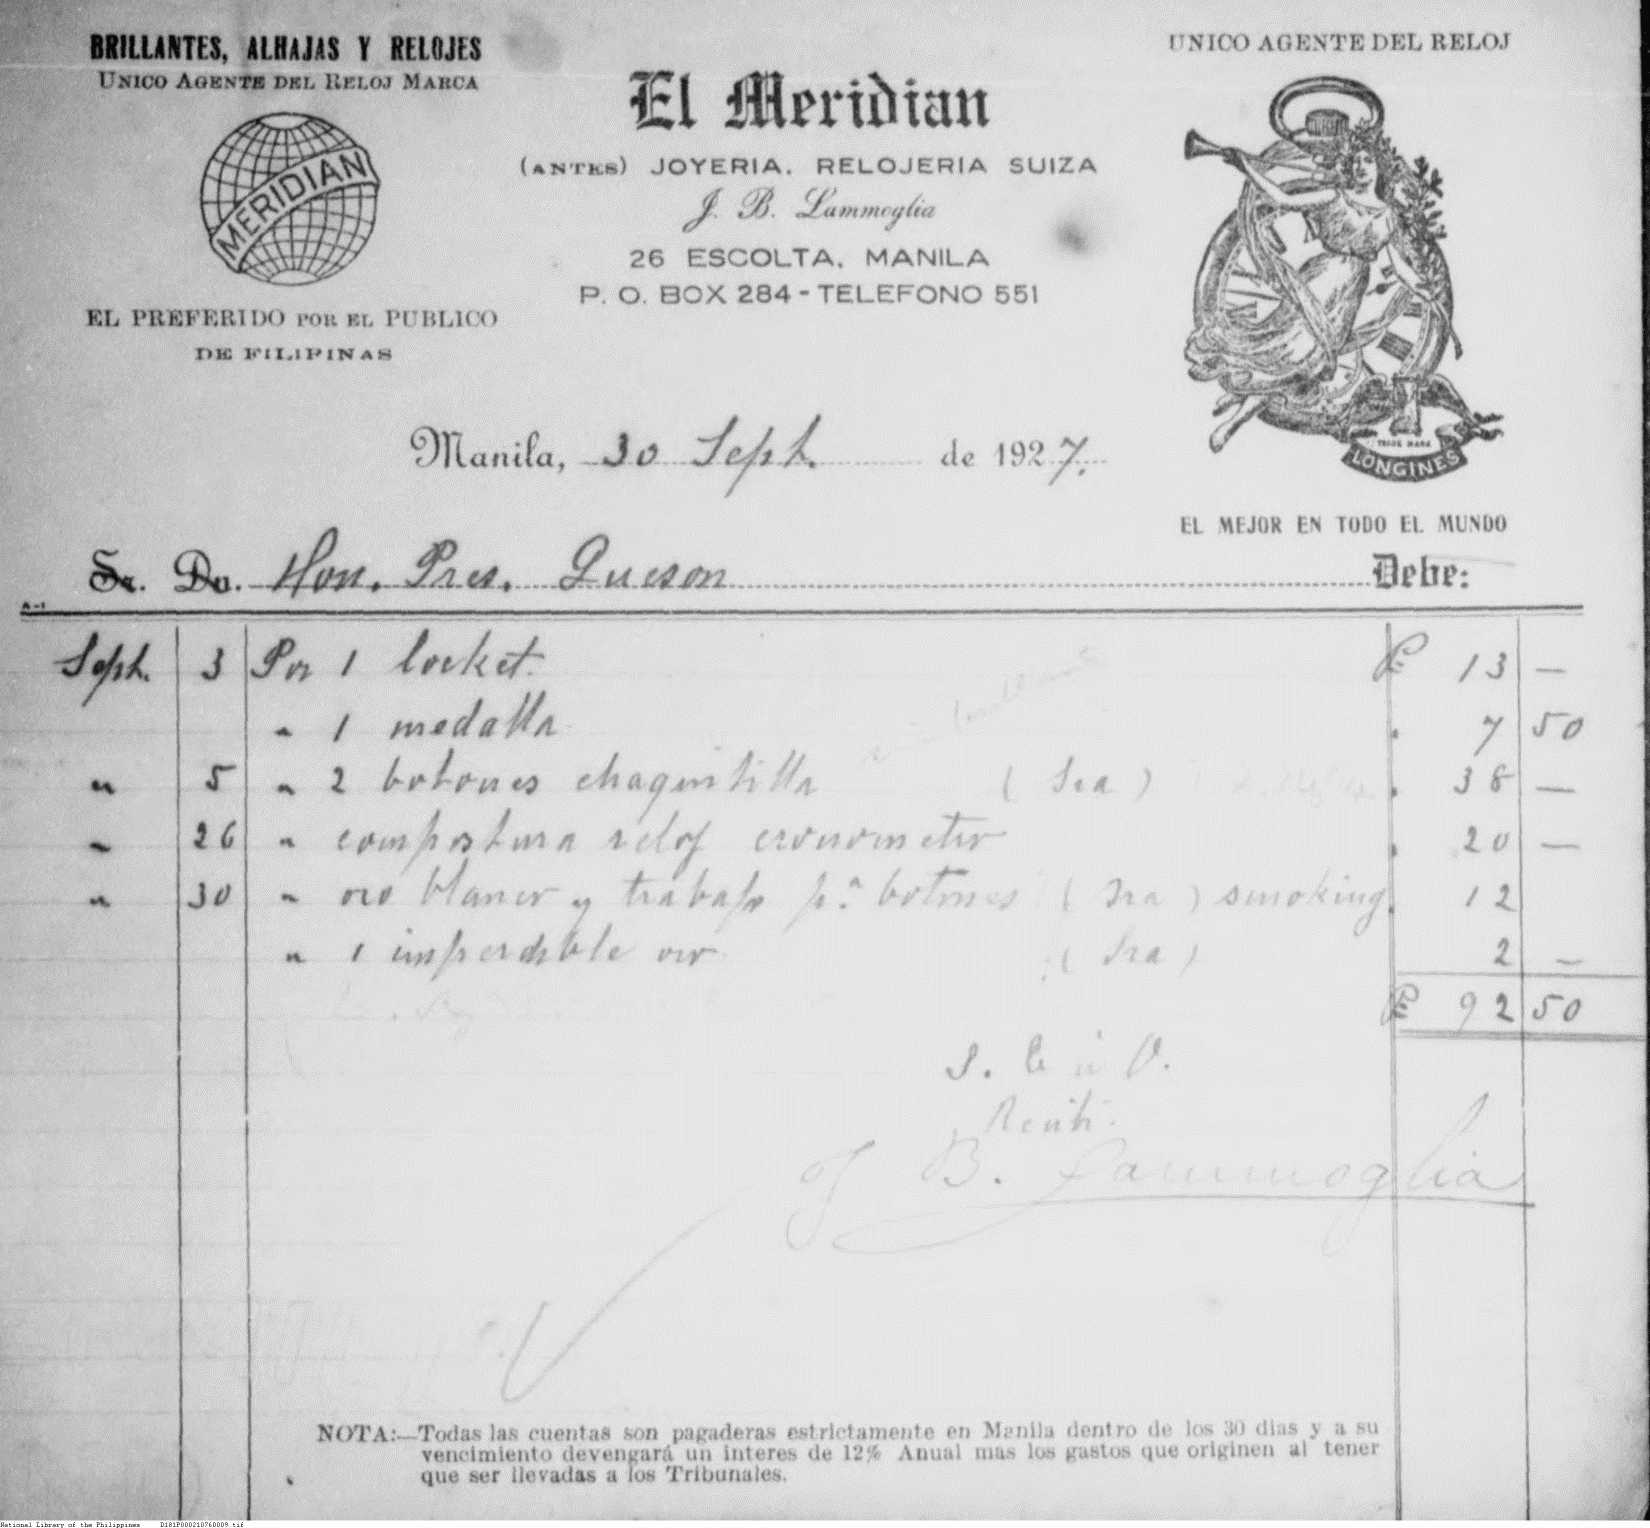 BRILLANTES, ALHAJAS Y RELOJES
UNICO AGENTE DEL RELOJ MARCA
MERIDIAN
EL PREFERIDO POR EL PUBLICO
DE FILIPINAS
El Meridian
(ANTES) JOYERIA. RELOJERIA SUIZA
J. B. Lammoglia
26 ESCOLTA. MANILA
P. O. BOX 284 - TELEFONO 551
UNICO AGENTE DEL RELOJ
TRADE MARK
LONGINES
EL MEJOR EN TODO EL MUNDO
Manila, 30 Sept. de 1927.
Sr. Dn. Hon. Pres. Queson Debe:
A-1
Sept. 3 Por 1 locket. ₱ 13 —
" 1 medalla " 7 50
" 5 " 2 botones chaquitilla (Sra) " 38 —
" 26 " compostura reloj cronometro " 20 —
" 30 " oro blanco y trabajo p.ª botones (Sra) smoking " 12
" 1 imperdible oro (Sra) 2 —
₱ 92 50
S. E. ú O.
Recibi.
J B. Lammoglia
NOTA:—Todas las cuentas son pagaderas estrictamente en Manila dentro de los 30 dias y a su
vencimiento devengará un interes de 12% Anual mas los gastos que originen al tener
que ser llevadas a los Tribunales.
National Library of the Philippines D181P000210760009.tif